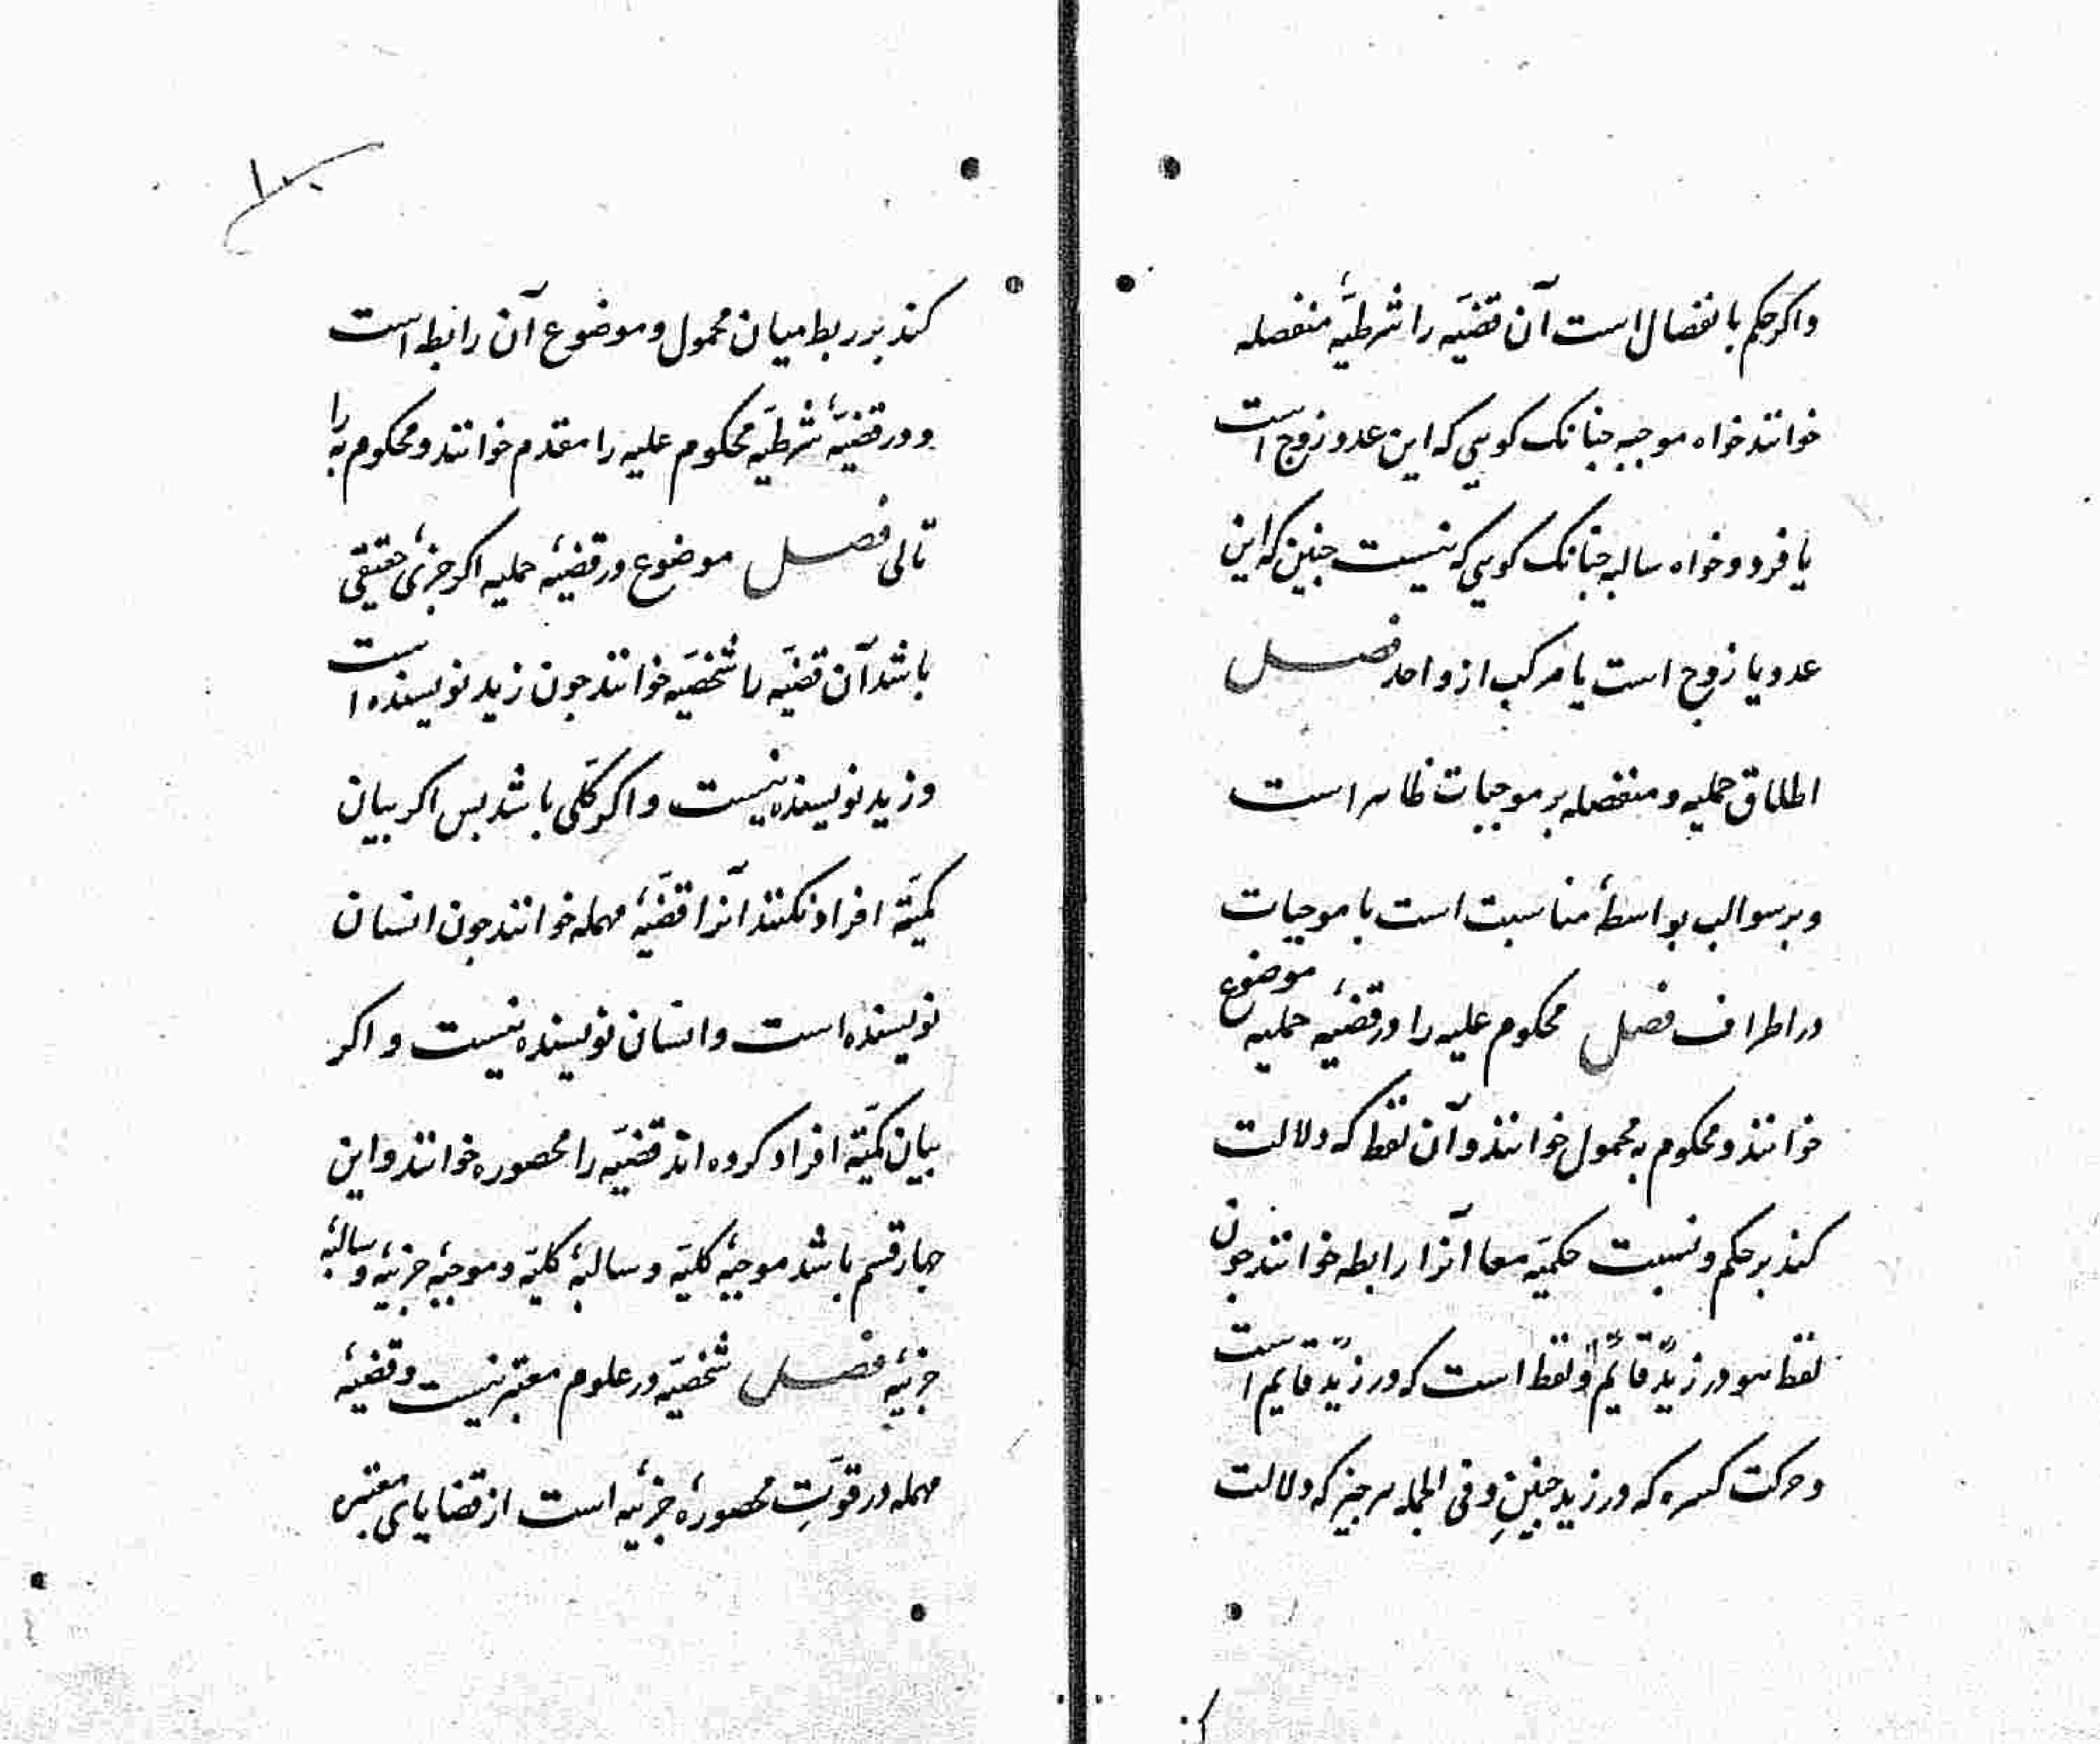 واکر حکم بانفصال است آن قضیّه را شرطیّهٔ منفصله
خوانند خواه موجبه جنانک کویی که این عدد زوج است
یا فرد و خواه سالبه جنانک کویی که نیست جنین که این
عدد یا زوج است یا مرکب از واحد فصل
اطلاق حملیه و منفصله بر موجبات ظاهر است
و بر سوالب بواسطهٔ مناسبت است با موجبات
در اطراف فصل محکوم علیه را در قضیّهٔ حملیه موضوع
خوانند و محکوم به محمول خوانند و آن لفظ که دلالت
کند بر حکم و نسبت حکمیّه معا آنرا رابطه خوانند جون
لفظ هو در زیدٌ قایمٌ و لفظ است که در زیدٌ قایم است
و حرکت کسره که در زید جنینِ و فی الجمله هر جیز که دلالت
کند بر ربط میان محمول و موضوع آن رابطه است
و در قضیّهٔ شرطیّه محکوم علیه را مقدم خوانند و محکوم به را
تالی فصل موضوع در قضیّهٔ حملیه اکر جزئی حقیقی
باشد آن قضیّه را شخصیّه خوانند جون زید نویسنده است
و زید نویسنده نیست و اکر کلّی باشد بس اکر بیان
کمیّة افراد نکنند آنرا قضیّهٔ مهمله خوانند جون انسان
نویسنده است و انسان نویسنده نیست و اکر
بیان کمیّة افراد کرده اند قضیّه را محصوره خوانند و این
جهار قسم باشد موجبهٔ کلیّه و سالبهٔ کلیّه و موجبهٔ جزئیّه و سالبهٔ
جزئیّه فصل شخصیّه در علوم معتبر نیست و قضیّهٔ
مهمله در قوّتِ محصورهٔ جزئیّه است از قضایای معتبره